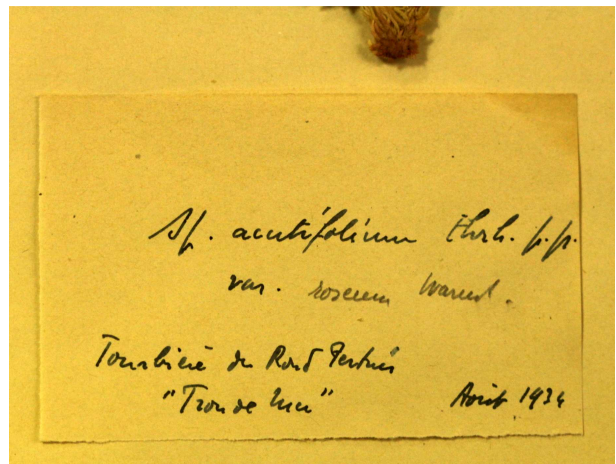 Sp. acutifolium Ehrh. p.p.
var. roseum Warnst.
Tourbière du Rond Pertuis
"Trou de
Août 1934